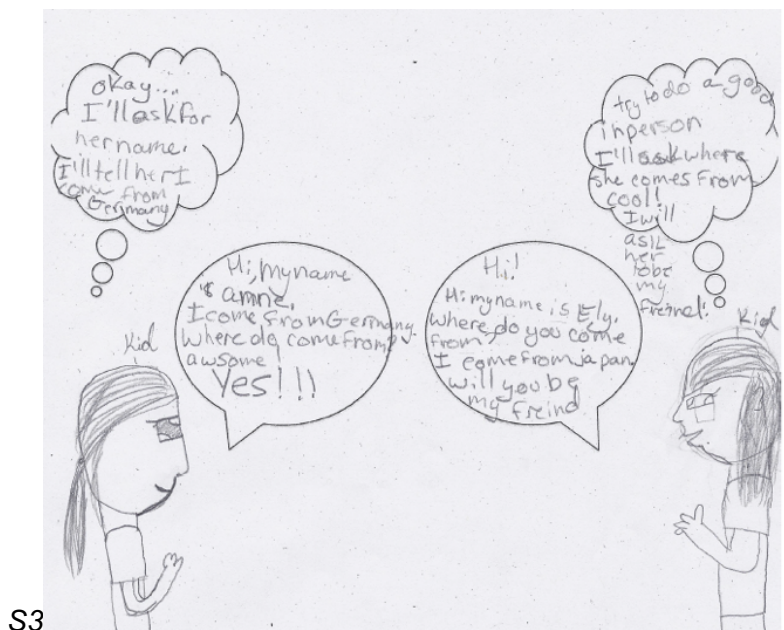 okay...
I'll ask for
her name.
I'll tell her I
come from
Germany
try to do a good
inperson
I'll ask where
she comes from
cool!
I will
ask
her
tobe
my
freind!
Hi, my name
is anne,
I come from Germany
where do come from?
awsome
Yes!!!
Hi!
Hi my name is Ely.
where do you come
from,
I come from japan.
will you be
my freind
Kid
Kid
S3